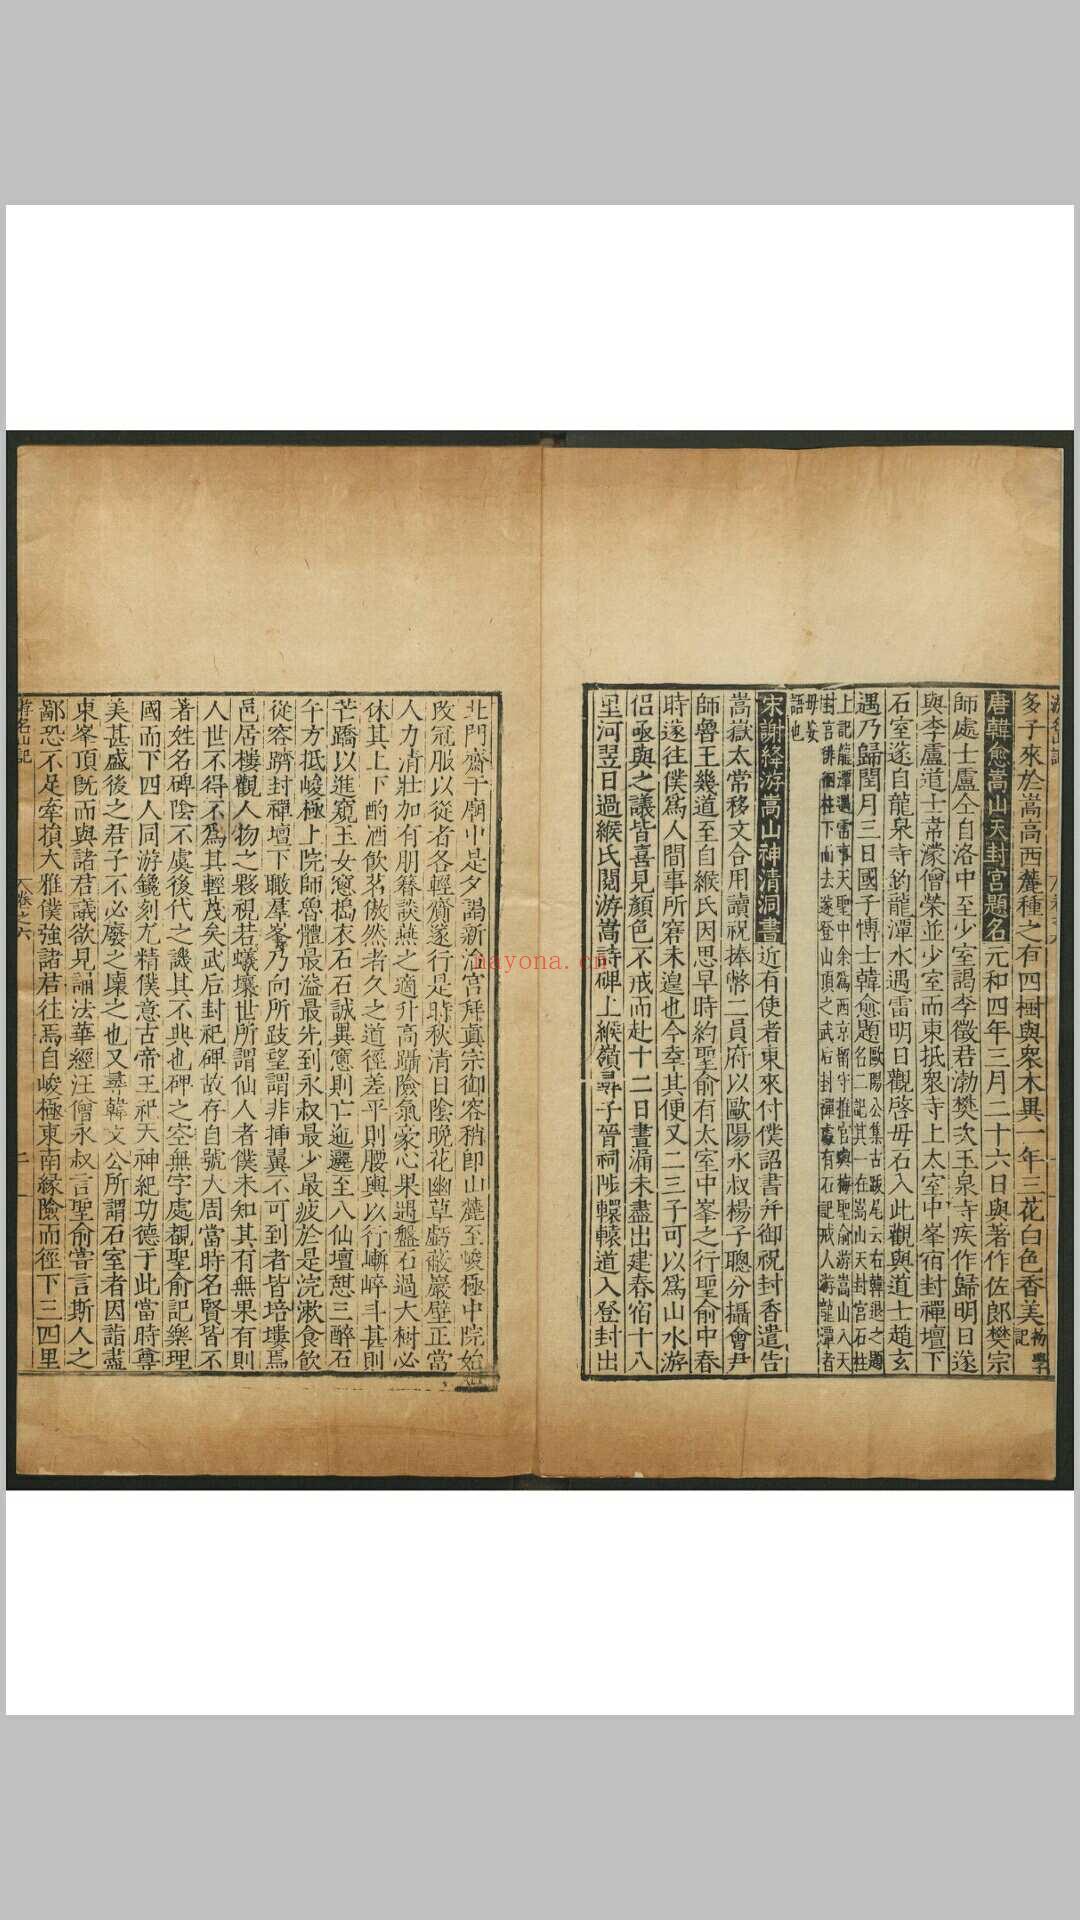 多子來於嵩高西麓種之有四樹與衆木異一年三花白色香美
唐韓愈嵩山天封宮題名元和四年三月二十六日與著作佐郎樊宗
師處士盧仝自洛中至少室謁李徵君渤樊次玉泉寺疾作歸明日遂
與李盧道士韋濛僧榮並少室而東抵衆寺上太室中峯宿封禪壇下
石室遂自龍泉寺釣龍潭水遇雷明日觀啓毋石入此觀與道士趙玄
遇乃歸閏月三日國子博士韓愈題歐陽公集古跋尾云右韓退之題
名二記其一在嵩山天封宮石柱
上記龍潭遇雷事天聖中余爲西京留守推官與梅聖俞游嵩山入天
封宮徘徊柱下而去遂登山頂之武后封禪處有石記戒人游龍潭者
毋妄
語也
宋謝絳游嵩山神清洞書近有使者東來付僕詔書并御祝封香遣告
嵩嶽太常移文合用讀祝捧幣二員府以歐陽永叔楊子聰分攝會尹
師魯王幾道至自緱氏因思早時約聖俞有太室中峯之行聖俞中春
時遂往僕爲人間事所窘未遑也今幸其便又二三子可以爲山水游
侣亟與之議皆喜見顏色不戒而赴十二日晝漏未盡出建春宿十八
里河翌日過緱氏閱游嵩詩碑上緱嶺尋子晉祠陟轘轅道入登封出
北門齋于廟中是夕謁新治宮拜眞宗御容稍即山麓至峻極中院始
改冠服以從者各輕齎遂行是時秋清日陰晚花幽草虧蔽巖壁正當
人力清壯加有朋簪談燕之適升高躡險氣豪心果遇盤石過大樹必
休其上下酌酒飲茗傲然者久之道徑差平則腰輿以行嶄崒斗甚則
芒蹻以進窺玉女窻搗衣石石誠異窻則亡迤邐至八仙壇憩三醉石
午方抵峻極上院師魯體最溢最先到永叔最少最疲於是浣漱食飲
從容躋封禪壇下瞰羣峯乃向所跂望謂非揷翼不可到者皆培塿焉
邑居樓觀人物之夥視若蟻壤世所謂仙人者僕未知其有無果有則
人世不得不爲其輕茂矣武后封祀碑故存自號大周當時名賢皆不
著姓名碑陰不虞後代之譏其不典也碑之空無字處覩聖俞記樂理
國而下四人同游鑱刻尤精僕意古帝王祀天神紀功德于此當時尊
美甚盛後之君子不必廢之壞之也又尋韓文公所謂石室者因詣盡
東峯頂旣而與諸君議欲見誦法華經汪僧永叔言聖俞嘗言斯人之
鄙恐不足牽損大雅僕強諸君往焉自峻極東南緣險而徑下三四里
遊名山記
卷之六
二
nayona.cn